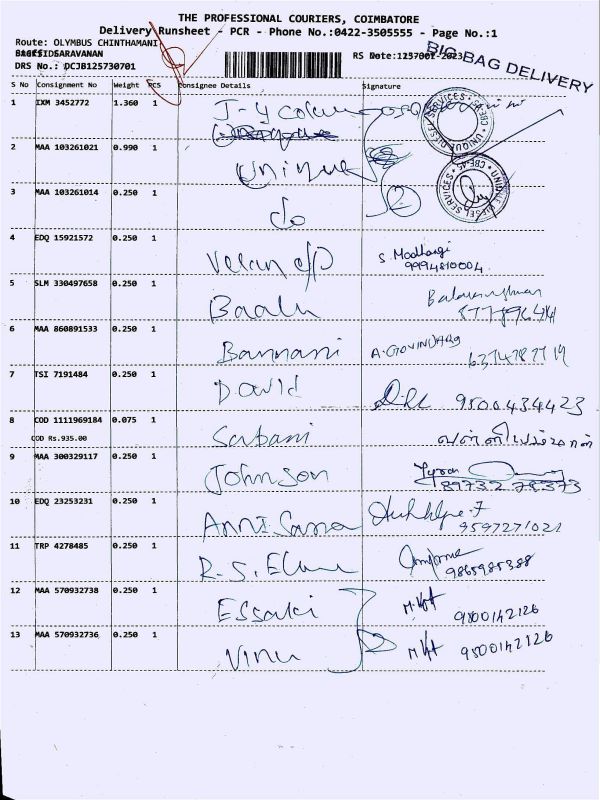 THE PROFESSIONAL COURIERS, COIMBATORE
Delivery Runsheet - PCR - Phone No.:0422-3505555 - Page No.:1
Route: OLYMBUS CHINTHAMANI
SARAVANAN
DRS No.: DCJB125730701
RS Date:
BIG BAG DELIVERY
S No Consignment No Weight PCS Consignee Details Signature
1 IXM 3452772 1.360 1
UNIQUE DIESEL SERVICES CBE-45
2 MAA 103261021 0.990 1 Unique
UNIQUE DIESEL SERVICES CBE-45
3 MAA 103261014 0.250 1 do 2
4 EDQ 15921572 0.250 1 Velan S. Madhangi
9994810004
5 SLM 330497658 0.250 1 Baalu
6 MAA 860891533 0.250 1 Bannani A. GOVINDARAJ
7 TSI 7191484 0.250 1 David 9500434423
8 COD 1111969184 0.075 1 Sabani
COD Rs.935.00
9 MAA 300329117 0.250 1 Johnson
89732 78373
10 EDQ 23253231 0.250 1 Anni Sana
9597271021
11 TRP 4278485 0.250 1 R.S.
9865985388
12 MAA 570932738 0.250 1 Essaki 9500142126
13 MAA 570932736 0.250 1 Vinu 9500142126